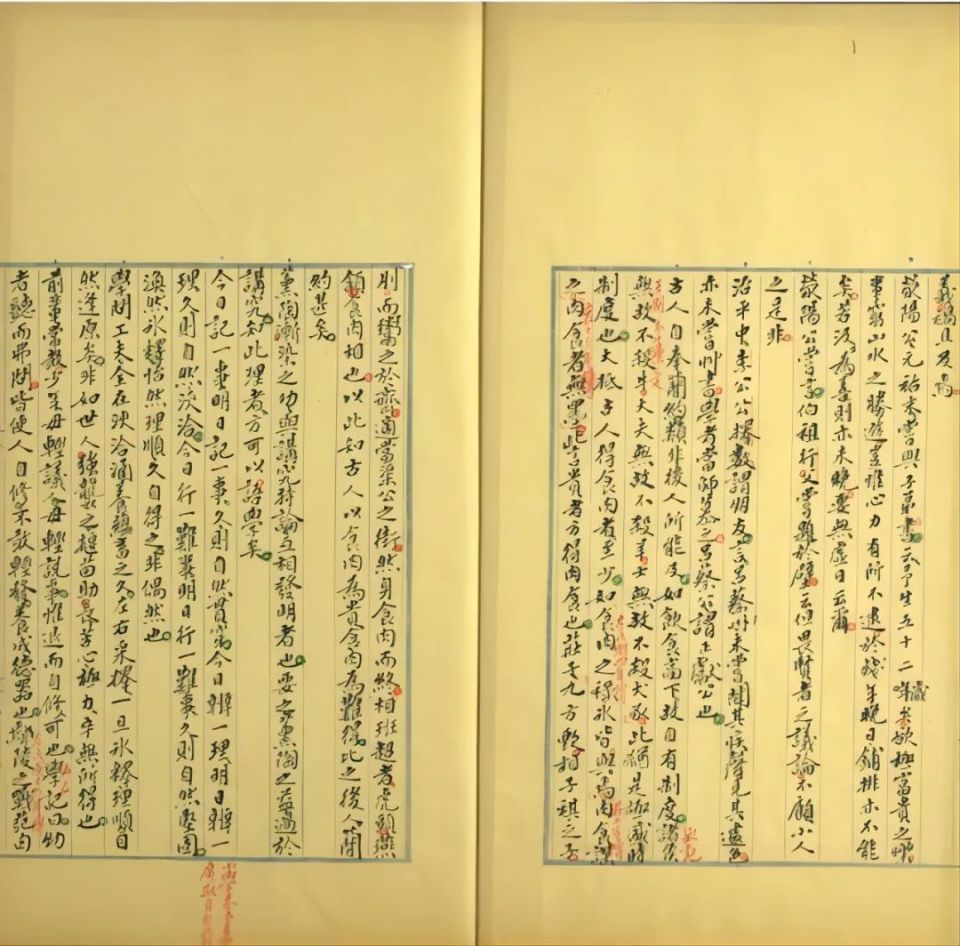 義禍且及焉
滎陽公元祐末嘗與子弟書云予生五十二歲矣欲極富貴之娛
專窮山水之勝遊豈惟心力有所不逮於殘年晚日鋪排亦不能
矣若汲汲為善則亦未晚要無虛日云爾
滎陽公嘗言伯祖行父嘗題於壁云但畏賢者之議論不顧小人
之是非
治平中李公公擇數謂朋友言呂蔡州未嘗聞其疾聲見其遽色
亦未嘗草書學者當師慕之呂蔡公謂正獻公也
古人自奉簡約類非後人所能及如飲食高下故自有制度諸侯
無故不殺牛大夫無故不殺羊士無故不殺犬豕此猶是極盛時
制度也大抵古人得食肉者至少如食肉之祿冰皆與焉肉食者謀
之肉食者無墨此言貴者方得肉食也莊子九方歅相子祺之子
則而鬻之於齊適當渠公之街然身食肉而終相班超者虎頭燕
頷食肉相也以此知古人以食肉為貴食肉為難得比之後人簡
約甚矣
薰陶漸染之功與講究持論互相發明者也要之薰陶之益過於
講究知此理者方可以語學矣
今日記一事明日記一事久則自然貫穿今日辨一理明日辨一
理久則自然浹洽今日行一難事明日行一難事久則自然堅固
渙然冰釋怡然理順久自得之非偶然也
學問工夫全在浹洽涵養蘊蓄之久左右采擇一旦冰釋理順自
然逢原矣非如世人強襲之揠苗助長苦心極力卒無所得也
前輩常教少年毋輕議人毋輕說事惟退而自修可也學記曰幼
者聽而弗問皆使人自修不敢輕發養成德器也鄢陵之戰范匄